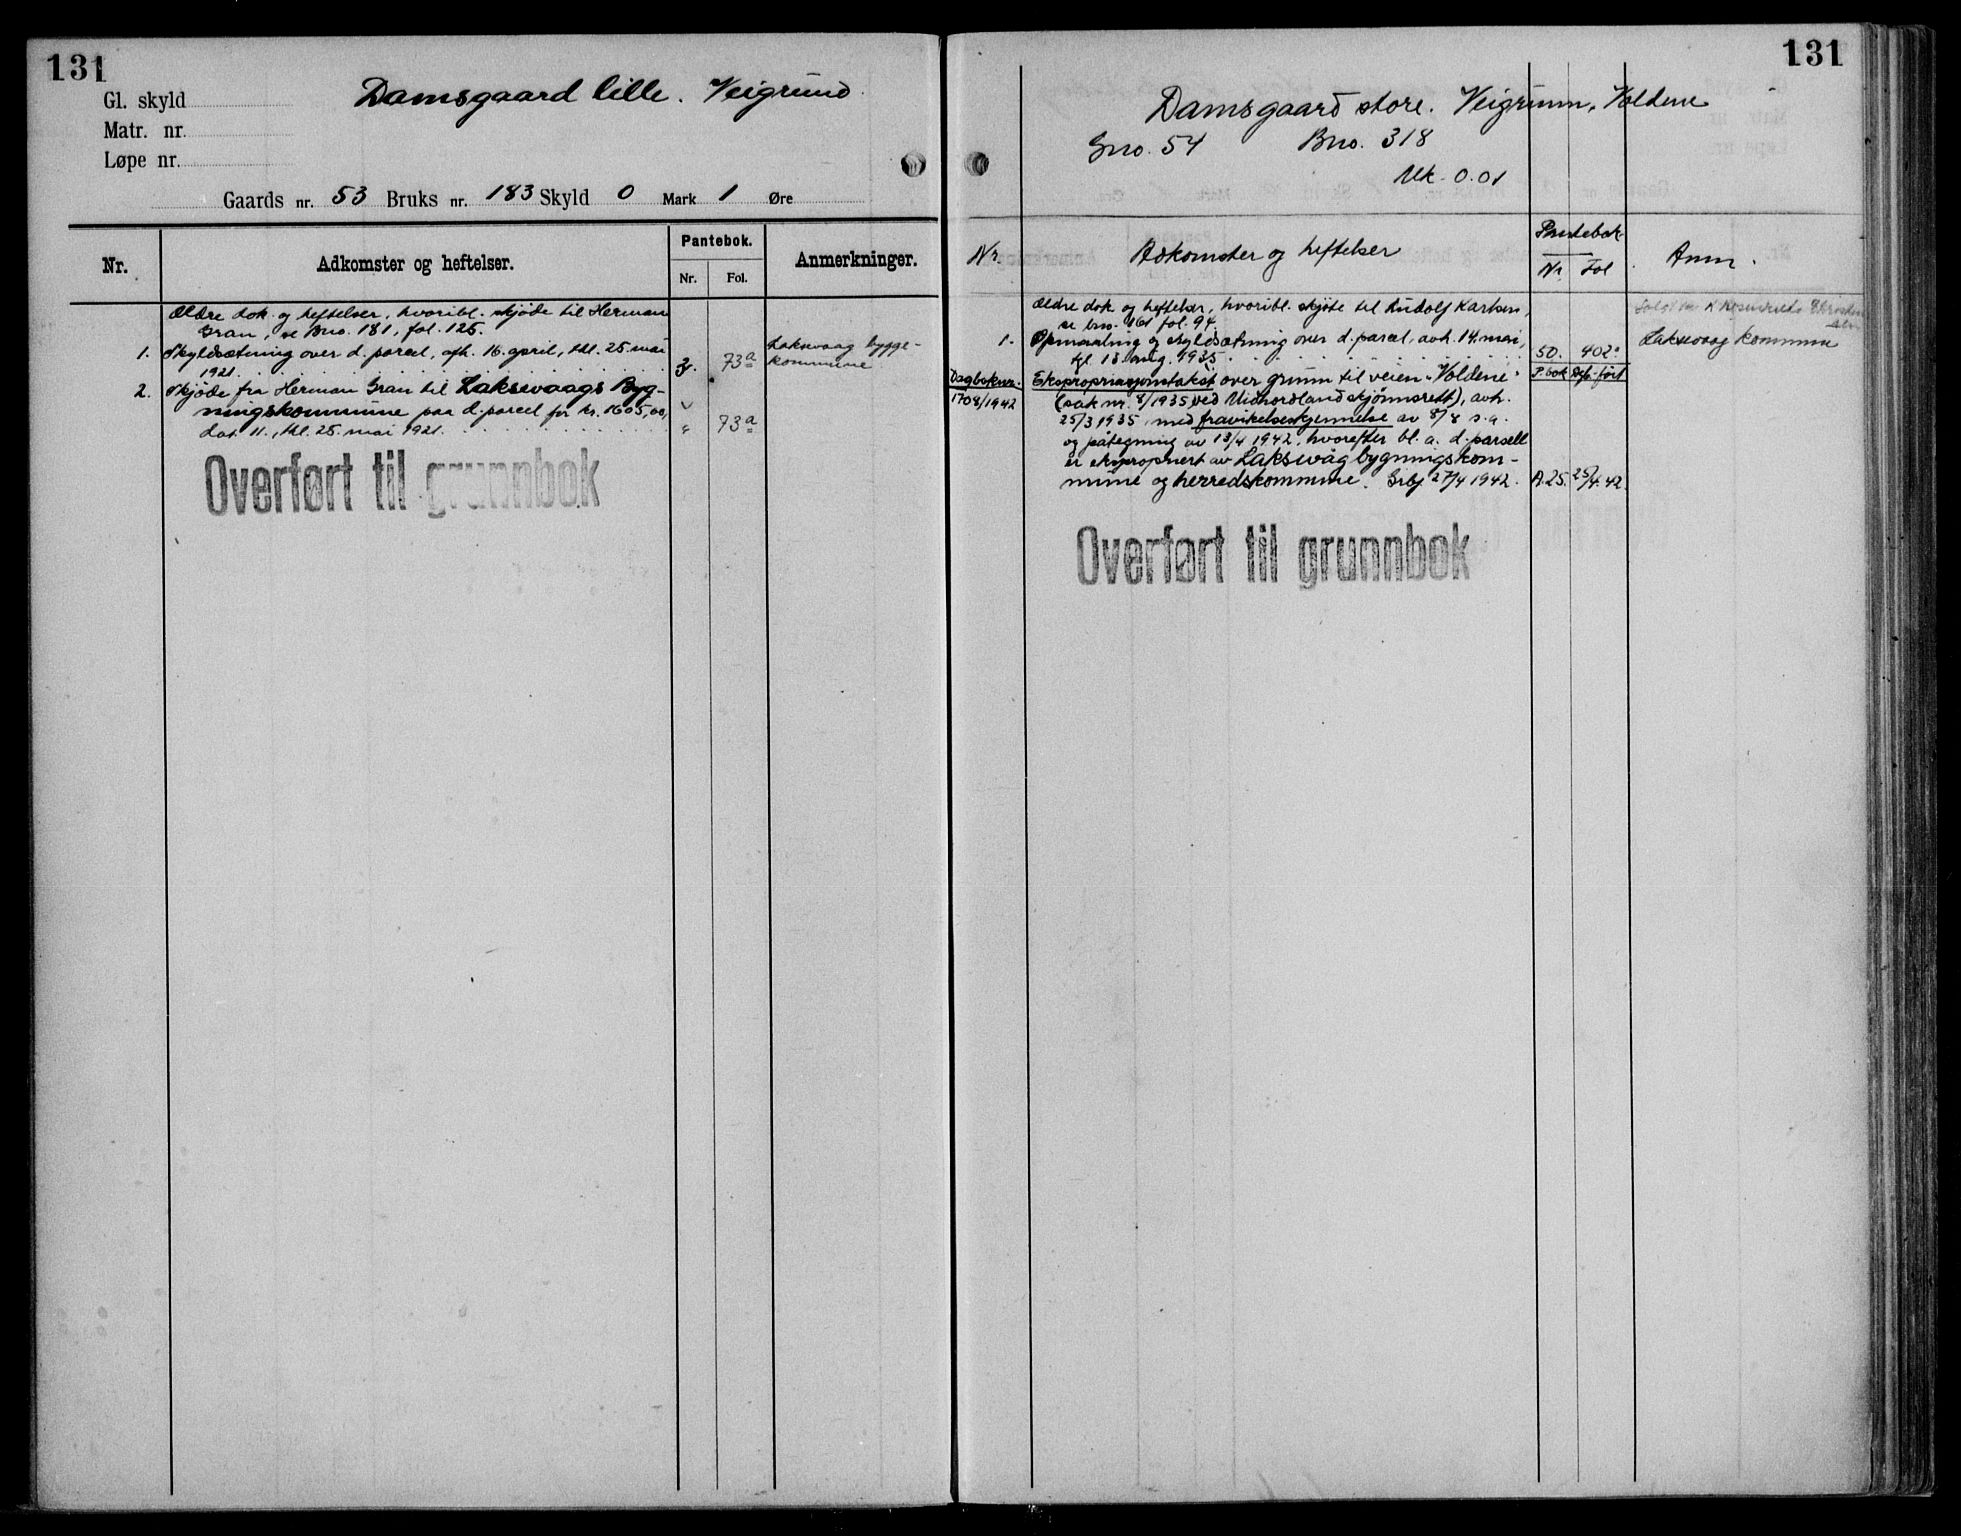 131
Gl. skyld
Matr. nr.
Løpe nr.
Damsgaard lille. Veigrund
Gaards nr. 53 Bruks nr. 183 Skyld 0 Mark 1 Øre
Nr. Adkomster og heftelser. Pantebok. Anmerkninger.
Nr. Fol.
Ældre dok. og heftelser, hvoribl. skjøde til Herman
Gran, se Bno. 181, fol. 125.
1. Skyldsætning over d. parcel, afh. 16. april, thl. 25. mai
1921. 73a
Laksevaag bygge-
kommune
2. Skjøde fra Herman Gran til Laksevaags Byg-
ningskommune paa d. parcel for kr. 1605,00,
dat. 11., thl. 25. mai 1921. " 73a
Overført til grunnbok
131
Damsgaard store. Veigrunn, Voldene
Gno. 54 Bno. 318
Mk. 0.01
Nr. Adkomster og heftelser Pantebok Anm.
Nr. Fol
Ældre dok. og heftelser, hvoribl. skjøte til Rudolf Karlsen,
se bno. 161 fol. 94.
1. Opmaaling og skyldsætning over d. parcel, avh. 14. mai,
tgl. 13. aug. 1935. 50. 402a
Laksevaag kommune
Dagboknr. Ekspropriasjonstakst over grunn til veien "Voldene" P.bok Dgb. ført
1708/1942 (sak nr. 8/1935 ved Midhordland skjønnsrett), avh.
25/3 1935, med fravikelseskjennelse av 8/8 s.a.
og påtegning av 13/4 1942, hvorefter bl. a. d. parsell
er ekspropriert av Laksevåg bygningskom-
mune og herredskommune. Grbf. 27/4 1942. A.25. 25/4.42.
Overført til grunnbok